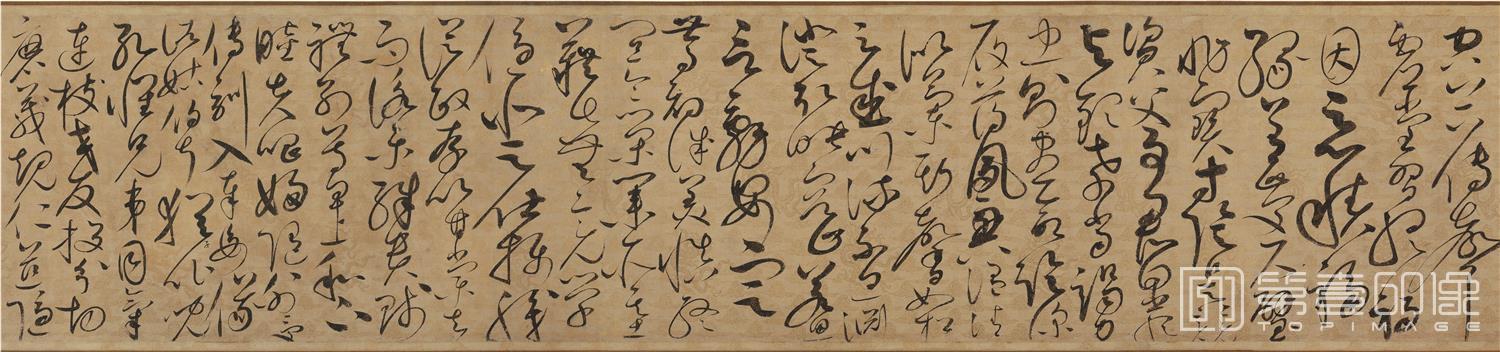 空谷傳聲
虛堂習聽禍
因惡積福
緣善慶尺璧
非寶寸陰是競
資父事君曰嚴
與敬孝當竭力
忠則盡命臨深
履薄夙興溫凊
似蘭斯馨如松
之盛川流不息淵
澄取映容止若思
言辭安定
篤初誠美慎終
宜令榮業所基
籍甚無竟學
優登仕攝職
從政存以甘棠去
而益詠樂殊貴賤
禮別尊卑上和下
睦夫唱婦隨外受
傅訓入奉母儀
諸姑伯叔猶子比兒
孔懷兄弟同氣
連枝交友投分切
磨箴規仁慈隱
TOPIMAGE